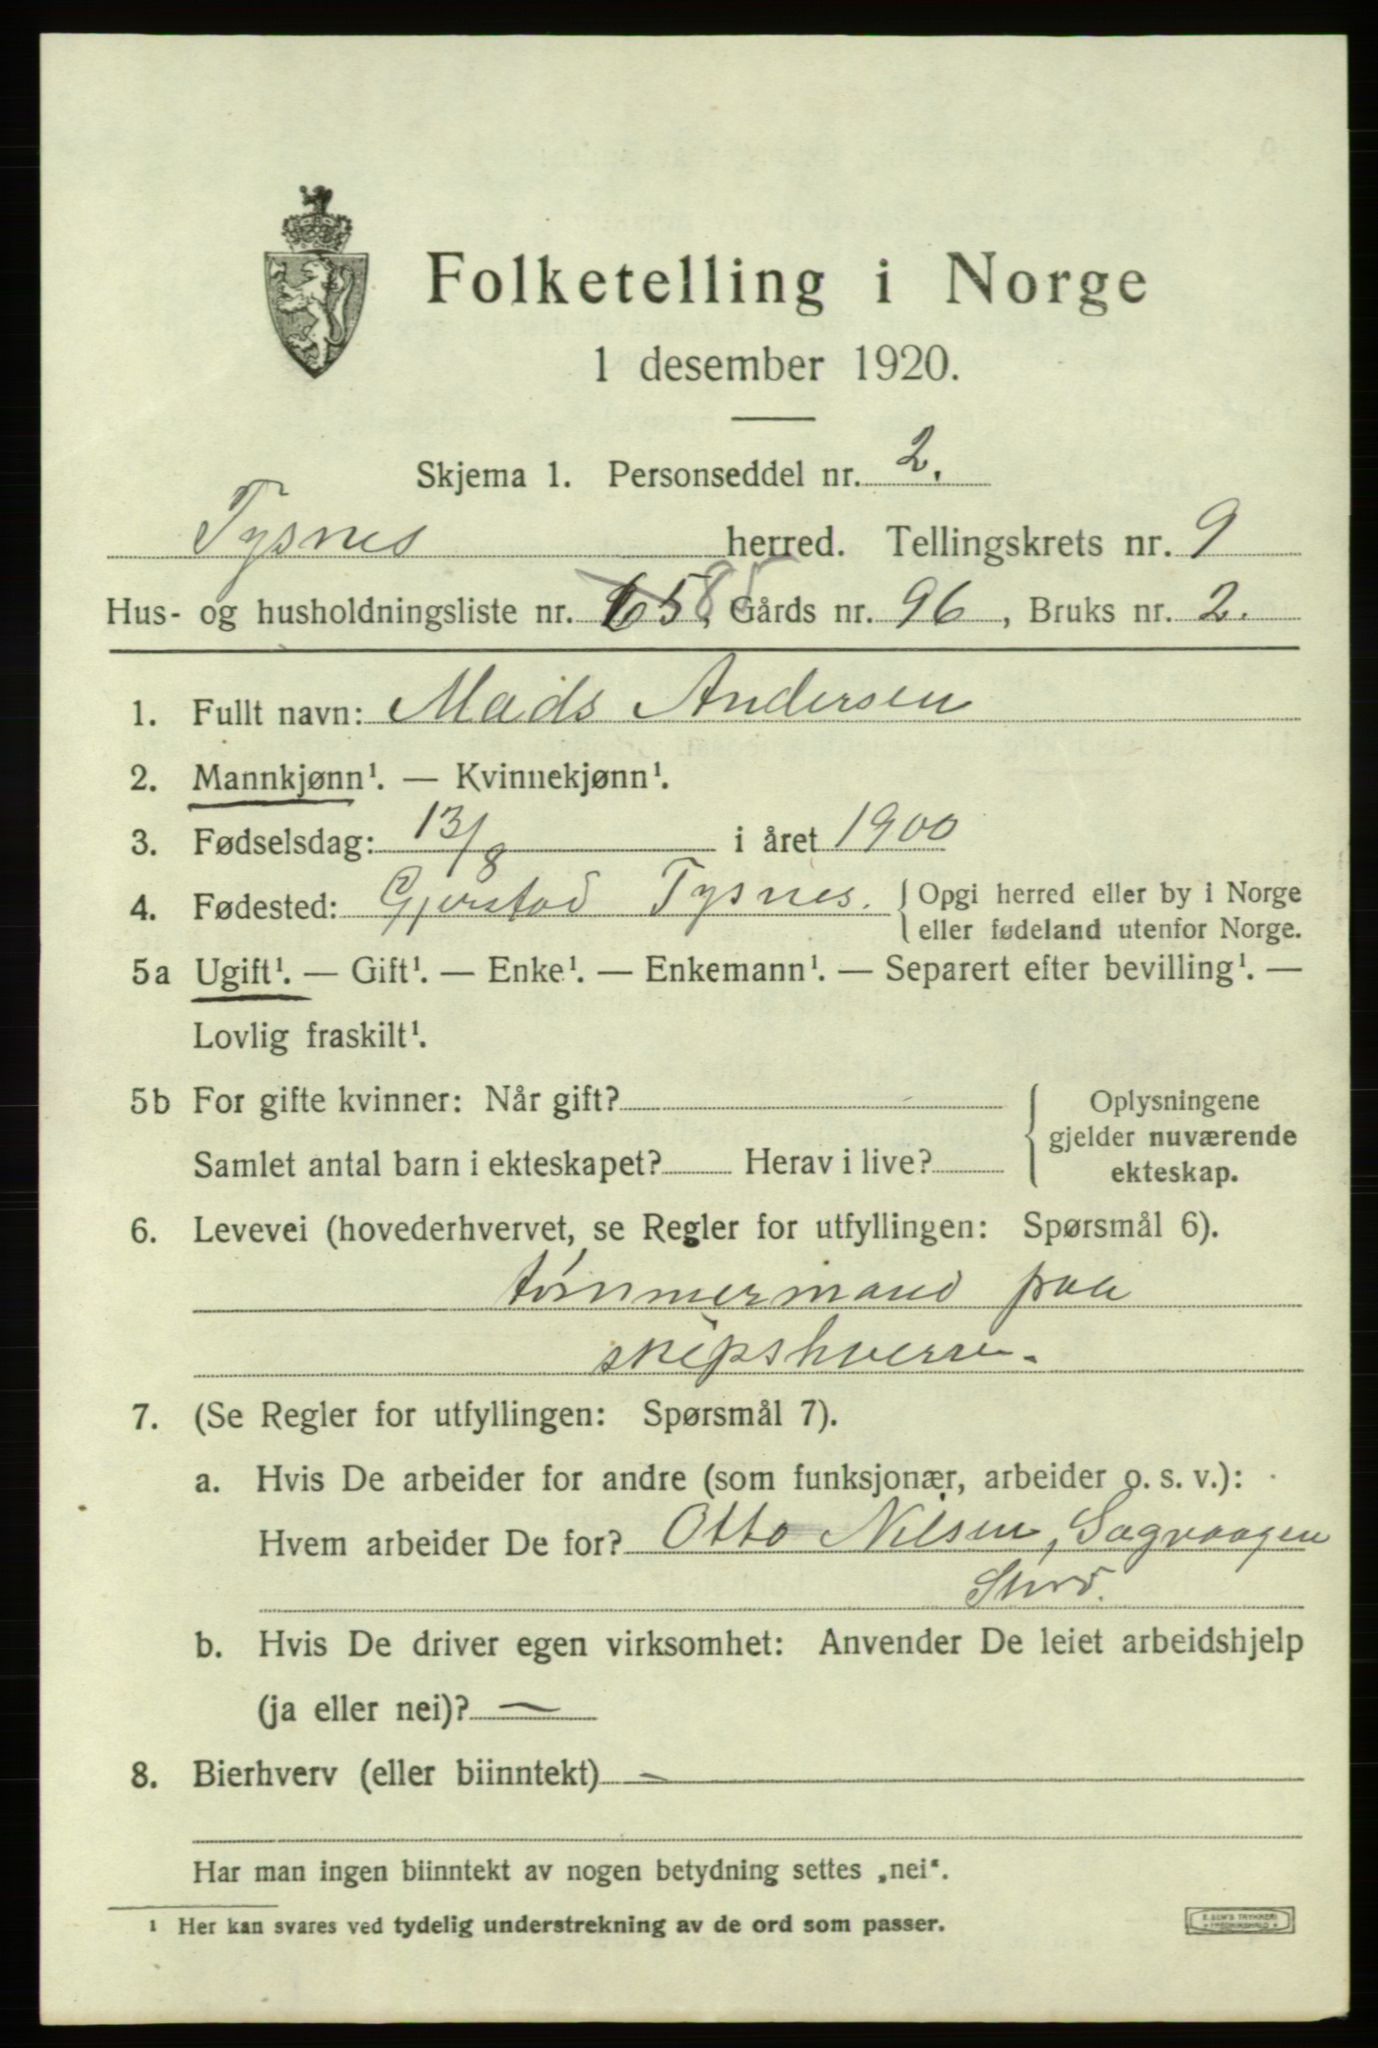 Folketelling i Norge
1 desember 1920.
Skjema 1. Personseddel nr. 2.
Tysnes herred. Tellingskrets nr. 9
Hus- og husholdningsliste nr. 65, 85 Gårds nr. 96, Bruks nr. 2.
1. Fullt navn: Mads Andersen
2. Mannkjønn¹. — Kvinnekjønn¹.
3. Fødselsdag: 13/8 i året 1900
4. Fødested: Gjerstad Tysnes. { Opgi herred eller by i Norge
eller fødeland utenfor Norge.
5a Ugift¹. — Gift¹. — Enke¹. — Enkemann¹. — Separert efter bevilling¹. —
Lovlig fraskilt¹.
5b For gifte kvinner: Når gift? { Oplysningene
gjelder nuværende
Samlet antal barn i ekteskapet? Herav i live?
ekteskap.
6. Levevei (hovederhvervet, se Regler for utfyllingen: Spørsmål 6).
tømmermand paa
skipshverv.
7. (Se Regler for utfyllingen: Spørsmål 7).
a. Hvis De arbeider for andre (som funksjonær, arbeider o. s. v.):
Hvem arbeider De for? Otto Nilsen, Sagvaagen
Stord.
b. Hvis De driver egen virksomhet: Anvender De leiet arbeidshjelp
(ja eller nei)? —
8. Bierhverv (eller biinntekt) —
Har man ingen biinntekt av nogen betydning settes „nei“.
¹ Her kan svares ved tydelig understrekning av de ord som passer.